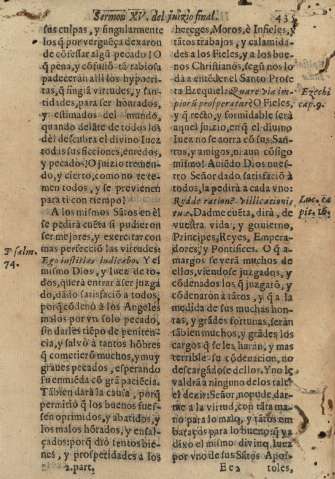 Sermon XV. del juizio final. 43
sus culpas, y singularmente
los q̃ por verguẽça dexaron
de cõfessar algũ pecado! O
q̃ pena, y cõfusiõ tã
padecerán alli los hypocri
tas, q̃ fingiã virtudes, y san
tidades, para ser honrados,
y estimados del mundo,
quando delãte de todos los
del descubra el divino Juez
todas sus ficciones, enredos,
y pecados! O juizio tremen-
do, y cierto, como no te te-
men todos, y se previenen
para ti con tiempo!
A los mismos Sãtos en èl
se pedirà cuẽta si pudieron
ser mejores, y exercitar con
mas perfecciõ las virtudes:
Psalm.
74.
Ego iustitias iudicabo. Y el
mismo Dios, y luez de to-
dos, querrà entrar à ser juzga
do, dãdo satisfaciõ a todos,
porq̃ cõdenò à los Angeles
malos por vn solo pecado,
sin darles tiẽpo de peniten-
cia, y salvò à tantos hõbres
q̃ cometierõ muchos, y muy
graues pecados, esperando
su enmiẽda cõ grã paciẽcia.
Tãbien darà la causa, porq̃
permitiò q̃ los buenos fues-
sen oprimidos, y abatidos, y
los malos hõrados, y ensal-
çados: porq̃ diò tantos bie-
nes, y prosperidades a los
2. part.
hereges, Moros, è Infieles, y
tãtos trabajos, y calamida-
des a los Fieles, y a los bue-
nos Christianos, segũ no lo
dà à entẽder el Santo Profe
ta Ezequiel:
Quare via im-
piorũ prosperatur?
Ezechi
cap. 9.
O Fieles,
y q̃ recto, y formidable serà
aquel juizio, en q̃ el divino
Juez no se ahorra cõ sus San-
tos, y amigos, ni aun cõsigo
mismo! Aviẽdo Dios nues-
tro Señor dado satisfaciõ à
todos, la pedirà à cada vno:
Redde rationẽ villicationis
tuæ.
Luc. ca
pit. 16.
Dadme cuẽta, dirà, de
vuestra vida, y govierno,
Principes, Reyes, Empera-
dores, y Pontifices. O q̃ a-
margos se verã muchos de
ellos, viẽdose juzgados, y
cõdenados los q̃ juzgarõ, y
cõdenaron à tãtos, y q̃ a la
medida de sus muchas hon-
ras, y grãdes fortunas, serán
tãbien muchos, y grãdes los
cargos q̃ se les harán, y mas
terrible su cõdenacion, no
descargãdose de ellos. Y no le
valdrà à ninguno de los tales
el dezir: Señor, no pude, dar-
me a la virtud, con tãta ma-
no para lo malo, y tãtos em-
baraços para lo bueno, q̃ ya
dixo el mismo divino Juez
por vno de sus Sãtos Apos-
Ee 2 toles,